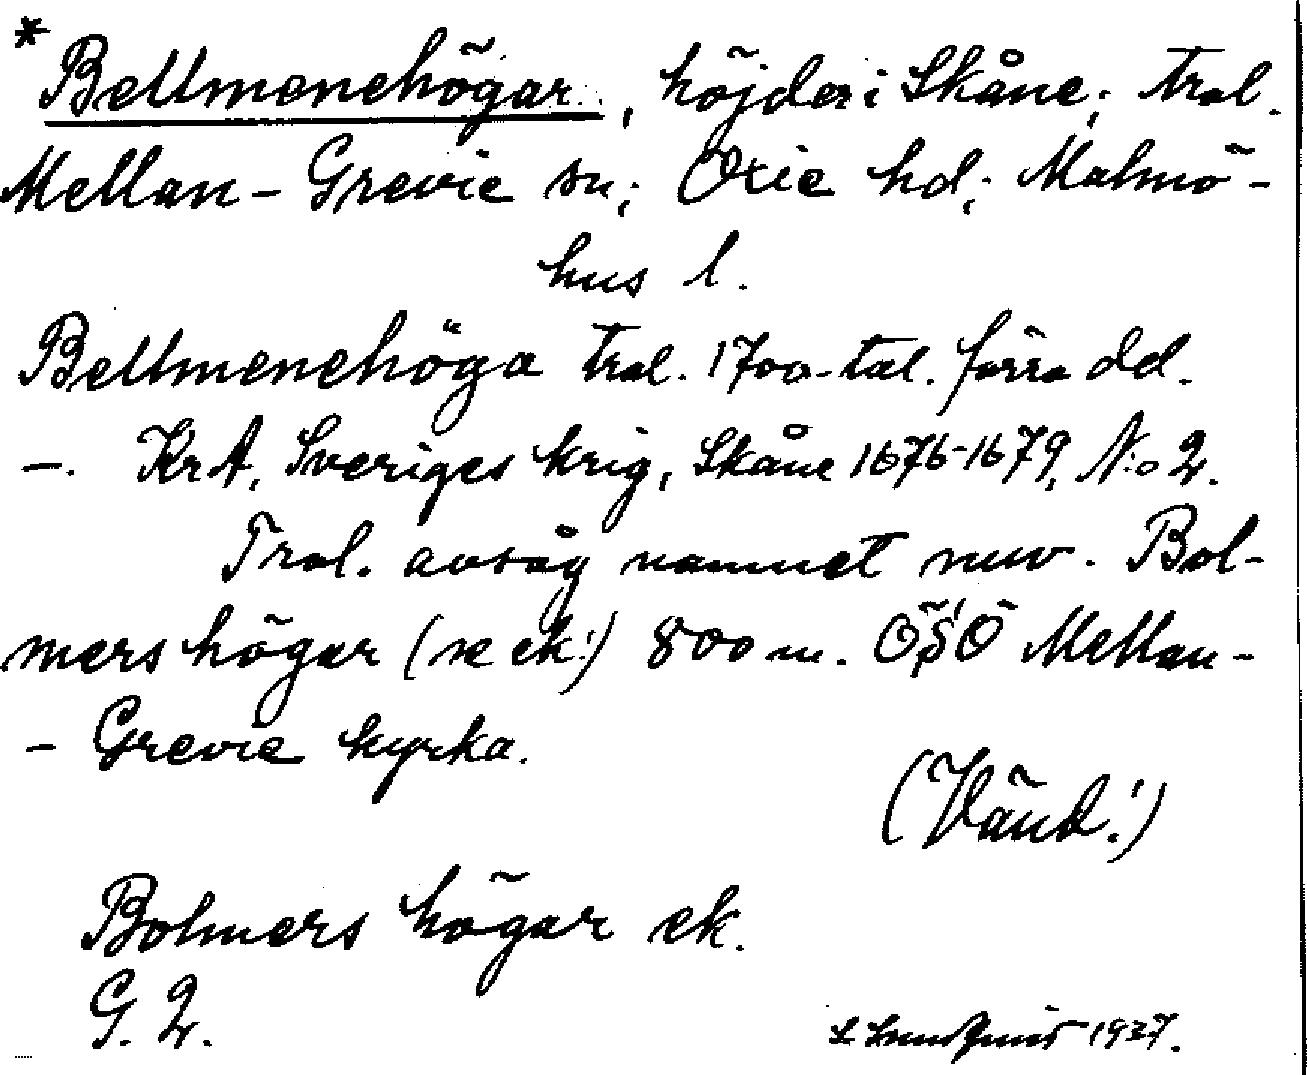 * Bellmenehögar, höjder i Skåne; trol.
Mellan-Grevie sn; Oxie hd; Malmö-
hus l.
Bellmenehöga trol. 1700-tal. förra del.
—. KrA, Sveriges krig, Skåne 1676-1679, N:o 2.
Trol. avsåg namnet nuv. Bol-
mers högar (se ek!) 800 m. ÖSÖ Mellan-
- Grevie kyrka.
(Vänd!)
Bolmers högar ek.
G. 2.
1937.